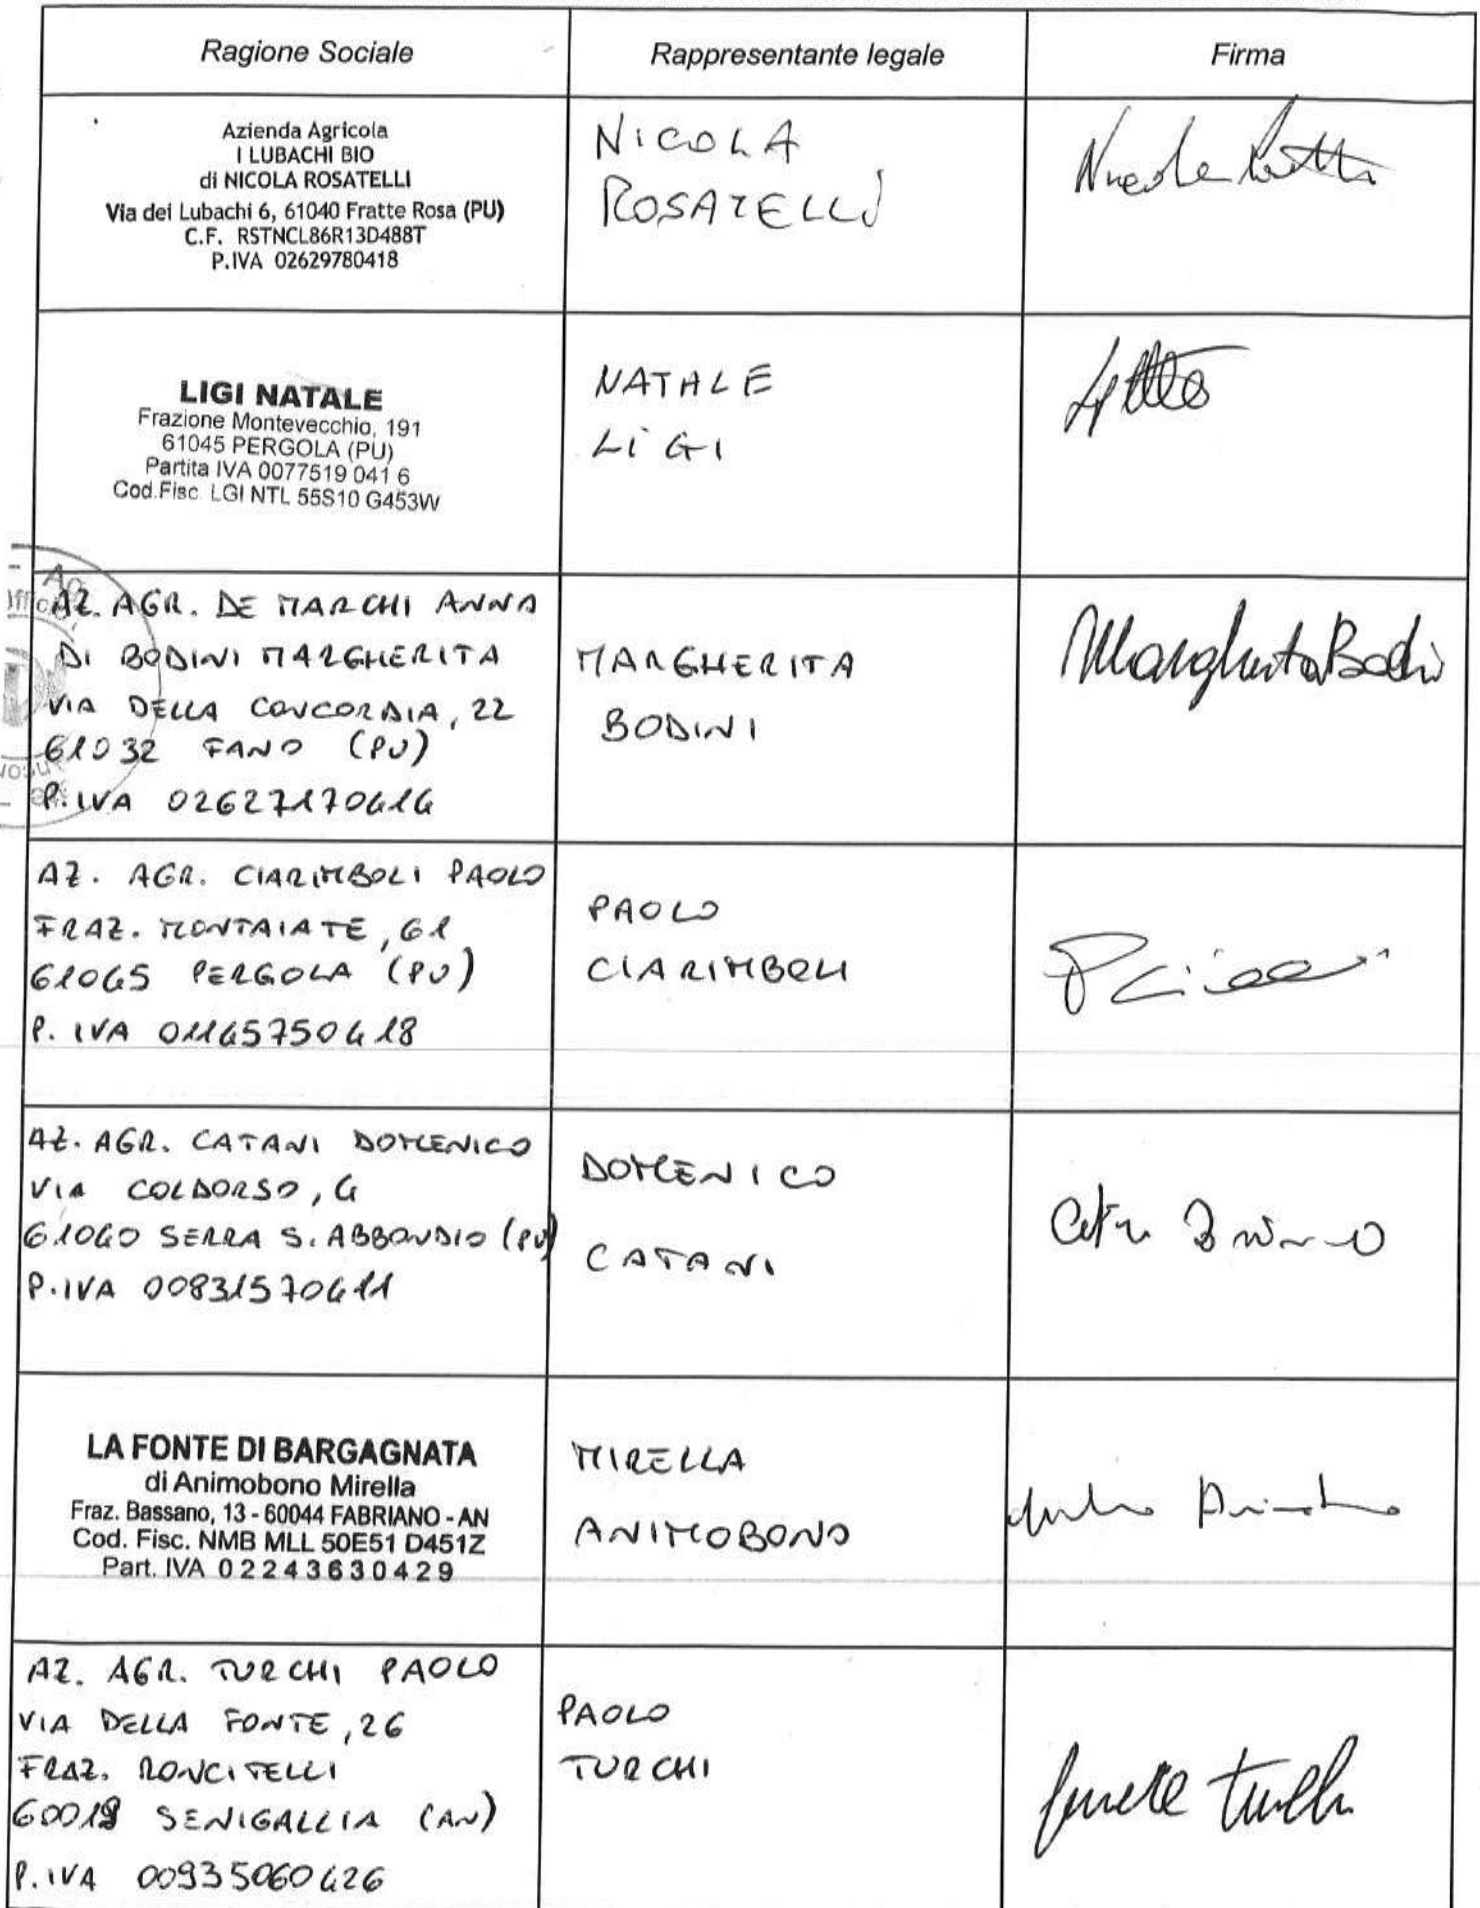 Ragione Sociale
Rappresentante legale
Firma
Azienda Agricola
I LUBACHI BIO
di NICOLA ROSATELLI
Via dei Lubachi 6, 61040 Fratte Rosa (PU)
C.F. RSTNCL86R13D488T
P.IVA 02629780418
NICOLA
ROSATELLI
LIGI NATALE
Frazione Montevecchio, 191
61045 PERGOLA (PU)
Partita IVA 0077519 041 6
Cod.Fisc. LGI NTL 55S10 G453W
NATALE
LIGI
AZ. AGR. DE MARCHI ANNA
DI BODINI MARGHERITA
VIA DELLA CONCORDIA, 22
61032 FANO (PU)
P.IVA 02627170414
MARGHERITA
BODINI
Margherita Bodini
AZ. AGR. CIARIMBOLI PAOLO
FRAZ. MONTAIATE, 41
61045 PERGOLA (PU)
P. IVA 01145750418
PAOLO
CIARIMBOLI
AZ. AGR. CATANI DOMENICO
VIA COLDORSO, 4
61040 SERRA S. ABBONDIO (PU)
P.IVA 00831570411
DOMENICO
CATANI
LA FONTE DI BARGAGNATA
di Animobono Mirella
Fraz. Bassano, 13 - 60044 FABRIANO - AN
Cod. Fisc. NMB MLL 50E51 D451Z
Part. IVA 0 2 2 4 3 6 3 0 4 2 9
MIRELLA
ANIMOBONO
AZ. AGR. TURCHI PAOLO
VIA DELLA FONTE, 26
FRAZ. RONCITELLI
60019 SENIGALLIA (AN)
P.IVA 00935060426
PAOLO
TURCHI